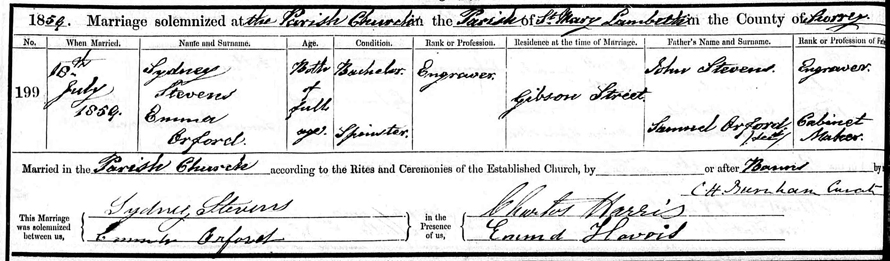 1859. Marriage solemnized at the Parish Church in the Parish of St Mary Lambeth in the County of Surrey
No. When Married. Name and Surname. Age. Condition. Rank or Profession. Residence at the time of Marriage. Father's Name and Surname. Rank or Profession of
199 18th July 1859. Sydney Stevens Both of full age. Bachelor. Engraver. Gibson Street. John Stevens. Engraver.
Emma Orford. Spinster. Samuel Orford Cabinet Maker.
Married in the Parish Church according to the Rites and Ceremonies of the Established Church, by or after Banns by
C H Burnham Curate
This Marriage was solemnized between us, Sydney Stevens in the Presence of us, Charles Harris
Emma Orford Emma Harris